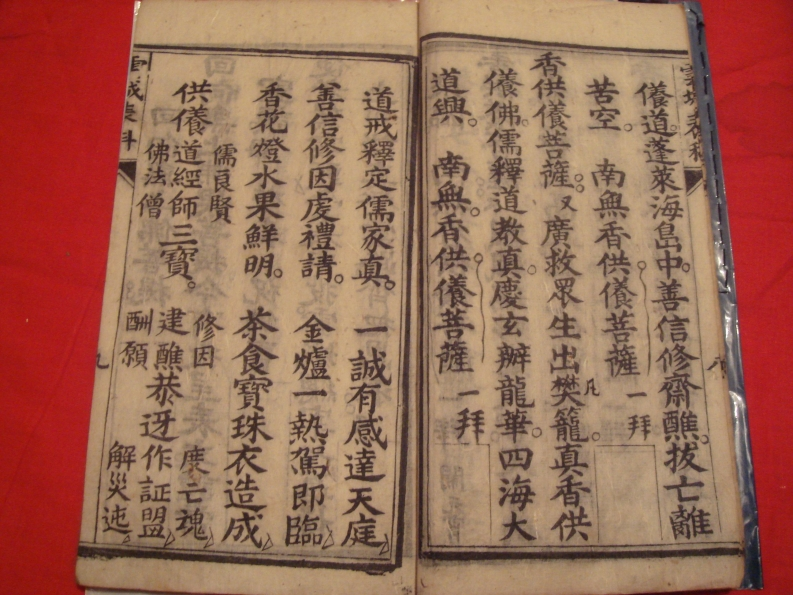 儀道蓬萊海島中善信修齋醮拔亡離
苦空 南無香供儀菩薩 一拜
香供儀菩薩又廣救眾生出樊籠真香供
儀佛儒釋道教真慶玄辦龍華四海大
道興 南無香供儀菩薩 一拜
道戒釋定儒家真 一誠有感達天庭
善信修因虔禮請 金爐一熱駕即臨
香花燈水果鮮明 茶食寶珠衣造成
儒良賢
供儀道經師三寶
佛法僧
修因 度亡魂
建醮恭迓作証盟
酬願 解災迍
九